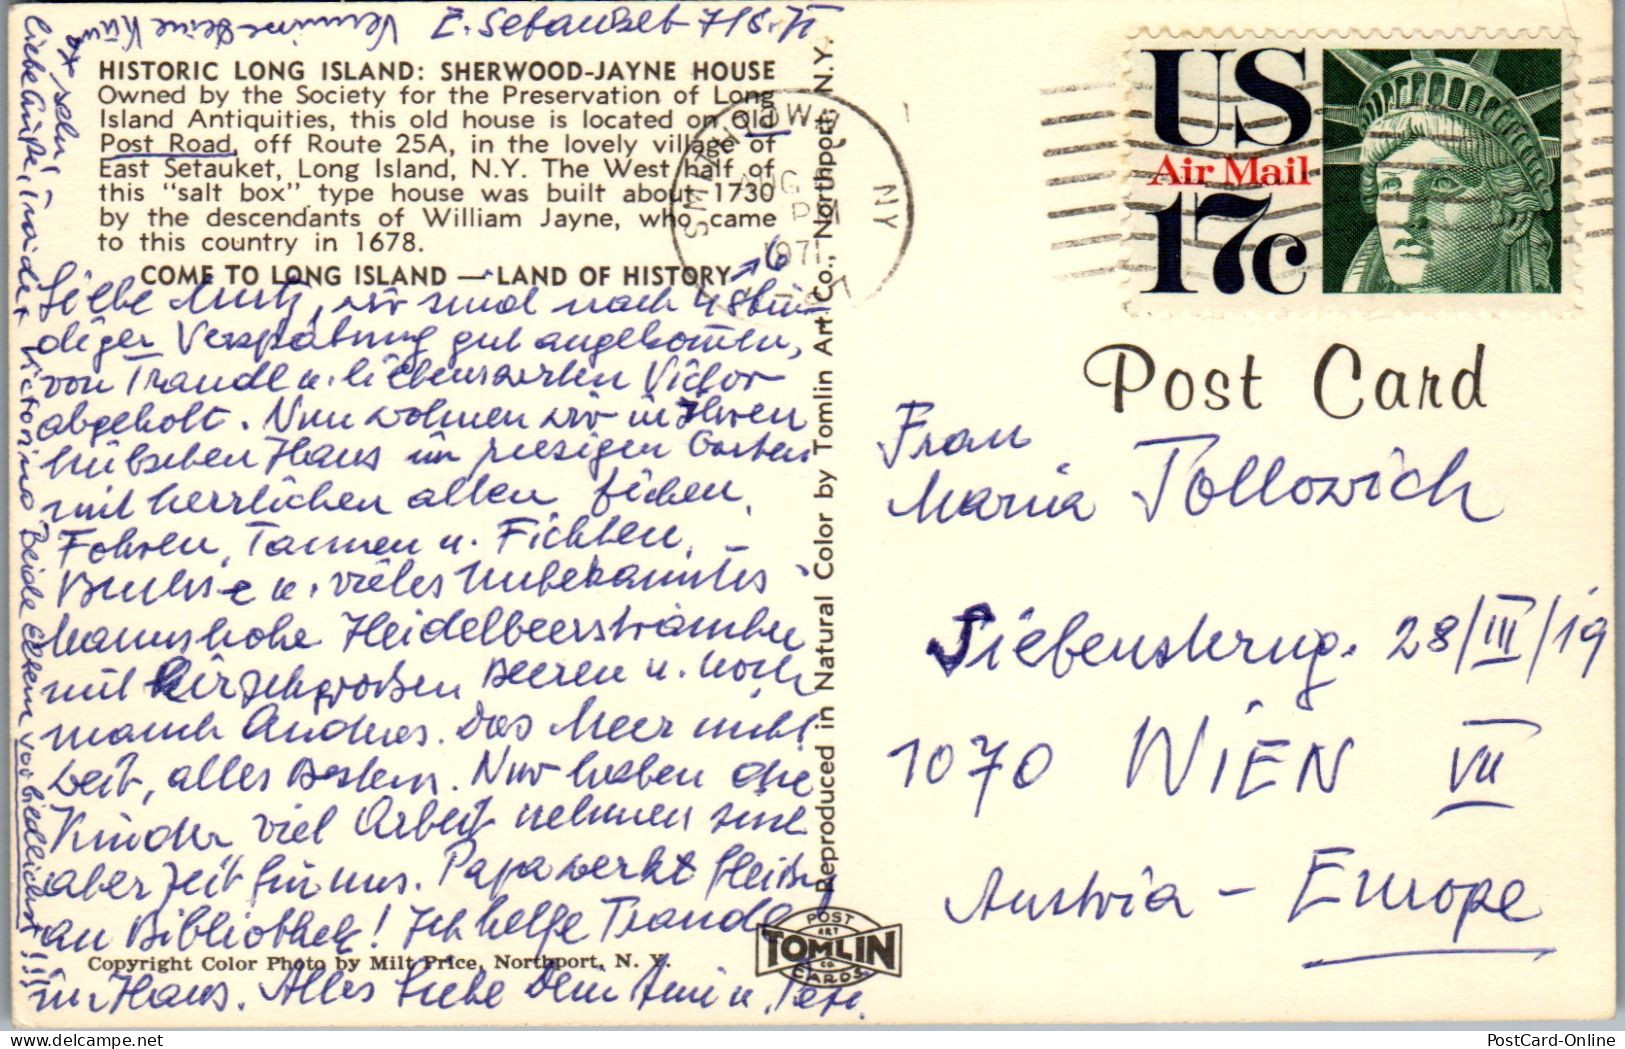 E. Setauket 7/8. 71
Vermisse deine
HISTORIC LONG ISLAND: SHERWOOD-JAYNE HOUSE
Owned by the Society for the Preservation of Long
Island Antiquities, this old house is located on Old
Post Road, off Route 25A, in the lovely village of
East Setauket, Long Island, N.Y. The West half of
this "salt box" type house was built about 1730
by the descendants of William Jayne, who came
to this country in 1678.
COME TO LONG ISLAND — LAND OF HISTORY
Liebe, wir sind nach 4 stün-
diger Verspätung gut angekommen,
von Traudl u. liebenswerten Victor
abgeholt. Nun wohnen wir in Ihren
hübschen Haus im riesigen Garten
mit herrlichen alten Eichen,
Fohren, Tannen u. Fichten,
u. vieles Unbekanntes
mannshohe Heidelbeersträucher
mit kirschgroßen Beeren u. noch
manch Anderes. Das Meer nicht
weit, alles Bestens. Nur haben die
Kinder viel Arbeit nehmen sich
aber Zeit für uns. Papa werkt fleißig
an Bibliothek! Ich helfe Traudl
im Haus. Alles Liebe Dein u. Peter
sehr
liebe Grüße, Traudl + Victorino. Beide Eltern vorbiedlichst!!!
Copyright Color Photo by Milt Price, Northport, N. Y.
Reproduced in Natural Color by Tomlin Art Co., Northport, N. Y.
POST
ART
TOMLIN
CO.
CARDS
SMITHTOWN
NY
AUG
PM
1971
US
Air Mail
17c
Post Card
Frau
Maria Tollowich
Siebensterng. 28/III/19
1070 WIEN VII
Austria – Europe
PostCard-Online